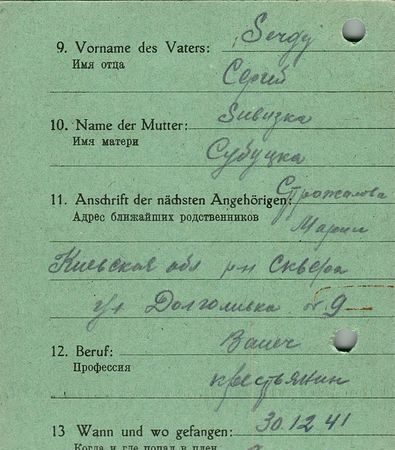 Sergij
9. Vorname des Vaters:
Имя отца
Сергий
Subuzka
10. Name der Mutter:
Имя матери
Субуцка
11. Anschrift der nächsten Angehörigen:
Адрес ближайших родственников
Мария
Киевская обл р-н Сквера
№ 9
12. Beruf:
Профессия
крестьянин
13 Wann und wo gefangen: 30.12.41
Когда и где попал в плен